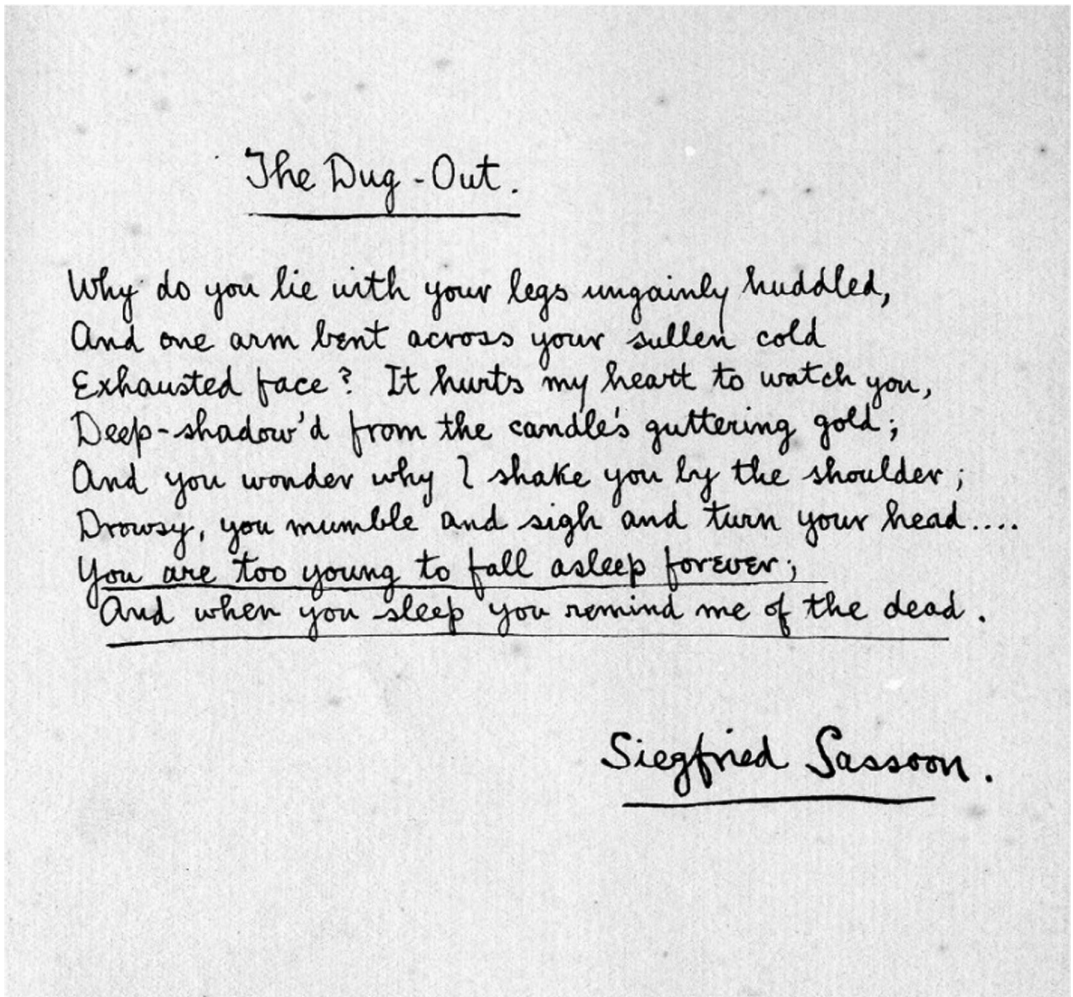 The Dug-Out.
Why do you lie with your legs ungainly huddled,
And one arm bent across your sullen cold
Exhausted face? It hurts my heart to watch you,
Deep-shadow'd from the candle's guttering gold;
And you wonder why I shake you by the shoulder;
Drowsy, you mumble and sigh and turn your head....
You are too young to fall asleep forever;
And when you sleep you remind me of the dead.
Siegfried Sassoon.